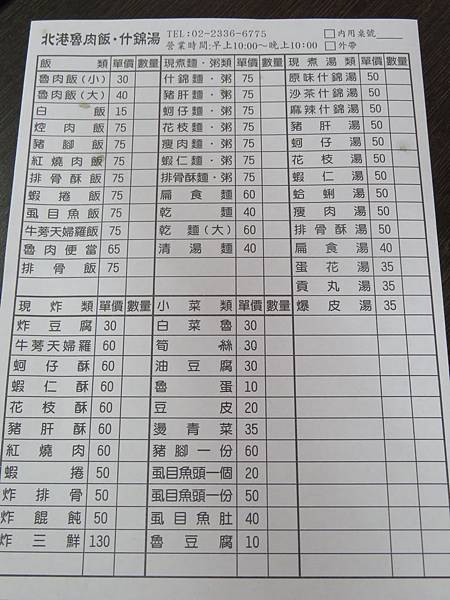 北港魯肉飯・什錦湯 TEL:02-2336-6775 □內用桌號
營業時間:早上10:00～晚上10:00 □外帶
飯類 單價 數量 現煮麵・粥類 單價 數量 現煮湯類 單價 數量
魯肉飯(小) 30 什錦麵・粥 75 原味什錦湯 50
魯肉飯(大) 40 豬肝麵・粥 75 沙茶什錦湯 50
白飯 15 蚵仔麵・粥 75 麻辣什錦湯 50
焢肉飯 75 花枝麵・粥 75 豬肝湯 50
豬腳飯 75 瘦肉麵・粥 75 蚵仔湯 50
紅燒肉飯 75 蝦仁麵・粥 75 花枝湯 50
排骨酥飯 75 排骨酥麵・粥 75 蝦仁湯 50
蝦捲飯 75 扁食麵 60 蛤蜊湯 50
虱目魚飯 75 乾麵 40 瘦肉湯 50
牛蒡天婦羅飯 75 乾麵(大) 60 排骨酥湯 50
魯肉便當 65 清湯麵 40 扁食湯 40
排骨飯 75 蛋花湯 35
貢丸湯 35
現炸類 單價 數量 小菜類 單價 數量 爆皮湯 35
炸豆腐 30 白菜魯 30
牛蒡天婦羅 60 筍絲 30
蚵仔酥 60 油豆腐 30
蝦仁酥 60 魯蛋 10
花枝酥 60 豆皮 20
豬肝酥 60 燙青菜 35
紅燒肉 60 豬腳一份 60
蝦捲 50 虱目魚頭一個 20
炸排骨 50 虱目魚頭一份 50
炸餛飩 50 虱目魚肚 40
炸三鮮 130 魯豆腐 10